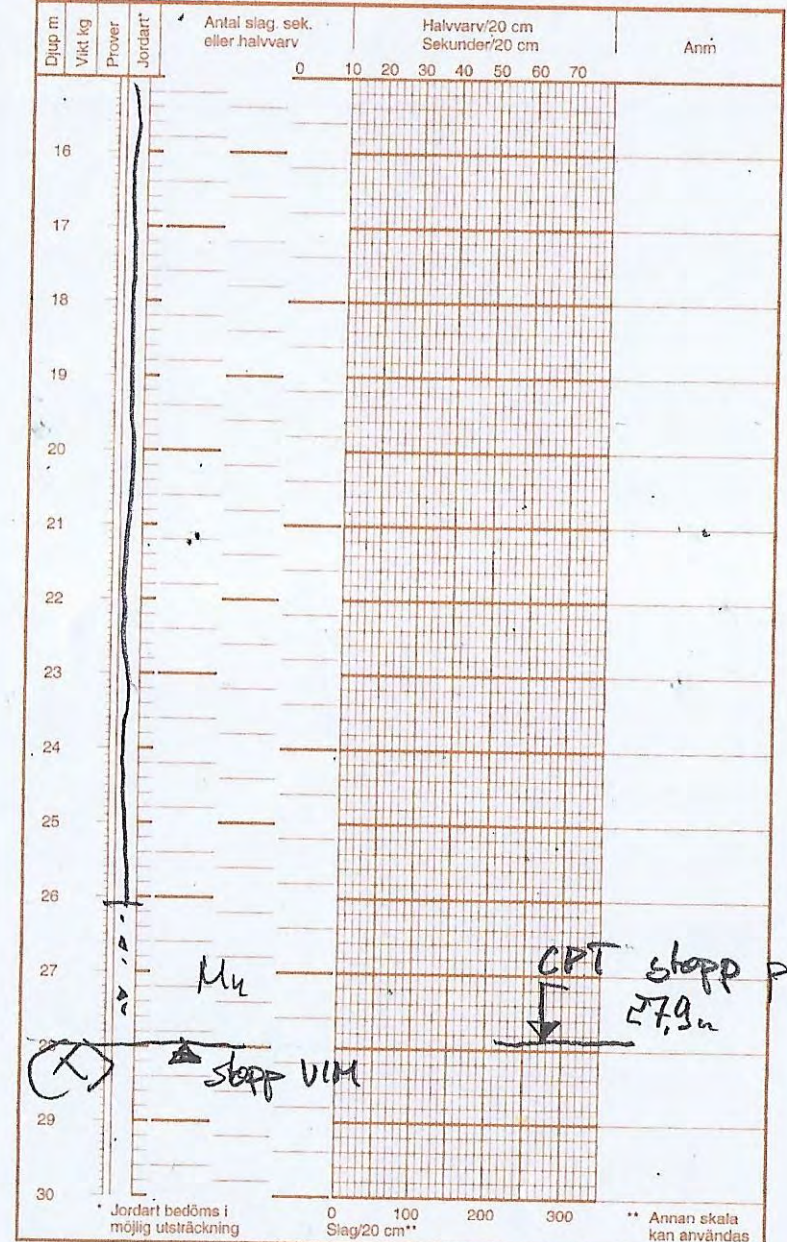 Djup m
Vikt kg
Prover
Jordart*
Antal slag. sek.
eller halvvarv
Halvvarv/20 cm
Sekunder/20 cm
Anm
0 10 20 30 40 50 60 70
16
17
18
19
20
21
22
23
24
25
26
27
Mn
CPT stopp
27,9
28
(X)
stopp VIM
29
30
* Jordart bedöms i
möjlig utsträckning
0 100 200 300
Slag/20 cm**
** Annan skala
kan användas